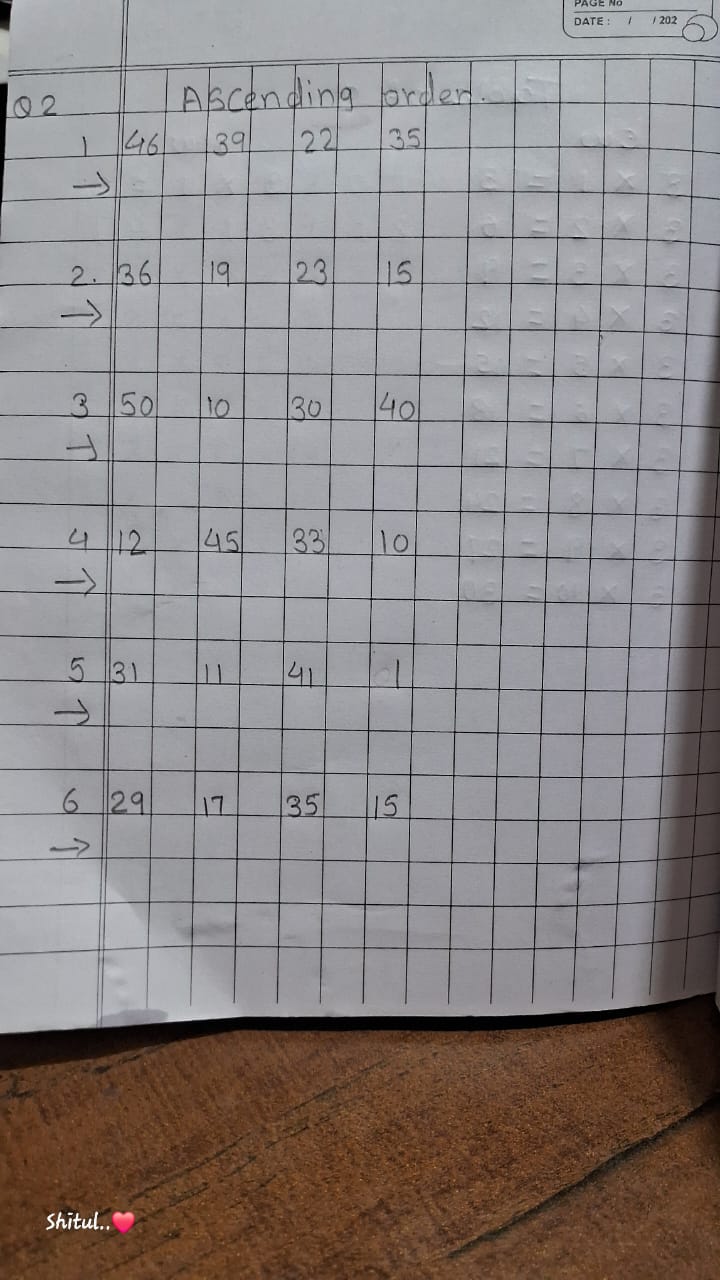 PAGE No
DATE : / / 202
Q2 Ascending order.
1 46 39 22 35
→
2. 36 19 23 15
→
3 50 10 30 40
→
4 12 45 33 10
→
5 31 11 41 1
→
6 29 17 35 15
→
Shitul..❤️